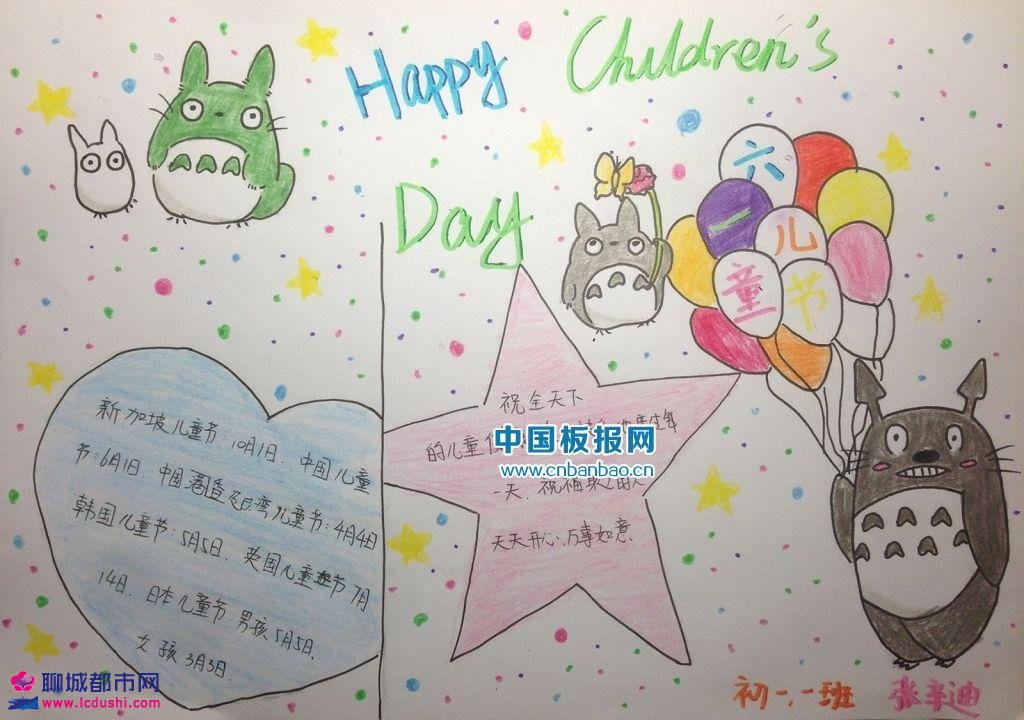 Happy Children's
Day
六
一
儿
童
节
新加坡儿童节 10月1日. 中国儿童
节:6月1日 中国港 台湾儿童节:4月4日
韩国儿童节:5月5日. 英国儿童 节7月
14日. 日本儿童节:男孩5月5日.
女孩3月3日.
祝全天下
的儿童
一天, 祝福
天天开心,万事如意.
中国板报网
www.cnbanbao.cn
初一.一班 张 迪
聊城都市网
www.lcdushi.com